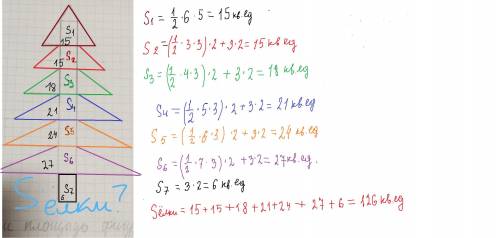 S1
15
S2
15
S3
18
S4
21
S5
24
S6
27
S7
6
Sелки?
и площадь фигу
S1 = 1/2 · 6 · 5 = 15 кв.ед
S2 = (1/2 · 3 · 3) · 2 + 3 · 2 = 15 кв.ед
S3 = (1/2 · 4 · 3) · 2 + 3 · 2 = 18 кв.ед
S4 = (1/2 · 5 · 3) · 2 + 3 · 2 = 21 кв.ед
S5 = (1/2 · 6 · 3) · 2 + 3 · 2 = 24 кв.ед
S6 = (1/2 · 7 · 3) · 2 + 3 · 2 = 27 кв.ед.
S7 = 3 · 2 = 6 кв.ед
Sёлки = 15 + 15 + 18 + 21 + 24 + 27 + 6 = 126 кв.ед